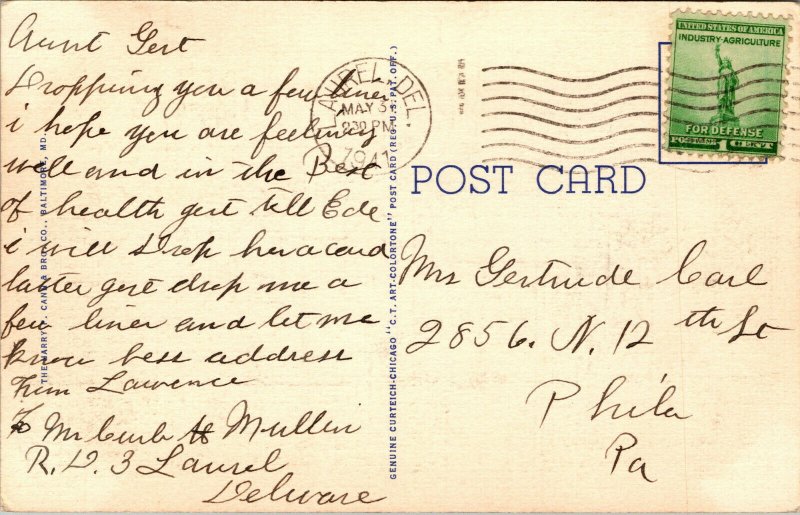 Aunt Gert
Dropping you a few lines
i hope you are feeling
well and in the Best
of health gert tell Ede
i will Drop her a card
latter gert drop me a
few lines and let me
know bess address
From Lawrence
To Mr H Mullin
R.D. 3 Laurel
Delware
THE HARRY P. CANN & BRO. CO., BALTIMORE, MD.
GENUINE CURTEICH-CHICAGO "C.T. ART-COLORTONE" POST CARD (REG. U.S. PAT. OFF.)
LAUREL, DEL.
MAY 3
2 30 PM
1941
UNITED STATES OF AMERICA
INDUSTRY-AGRICULTURE
FOR DEFENSE
POSTAGE 1 CENT
POST CARD
Mrs Gertrude Carl
2856. N. 12th St
Phila
Pa